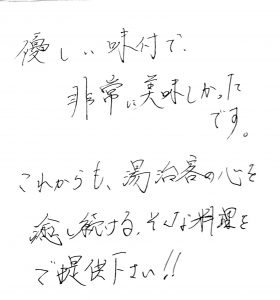 優しい味付で、
非常に美味しかった
です。
これからも、湯治客の心を
癒し続ける、そんな料理を
ご提供下さい!!